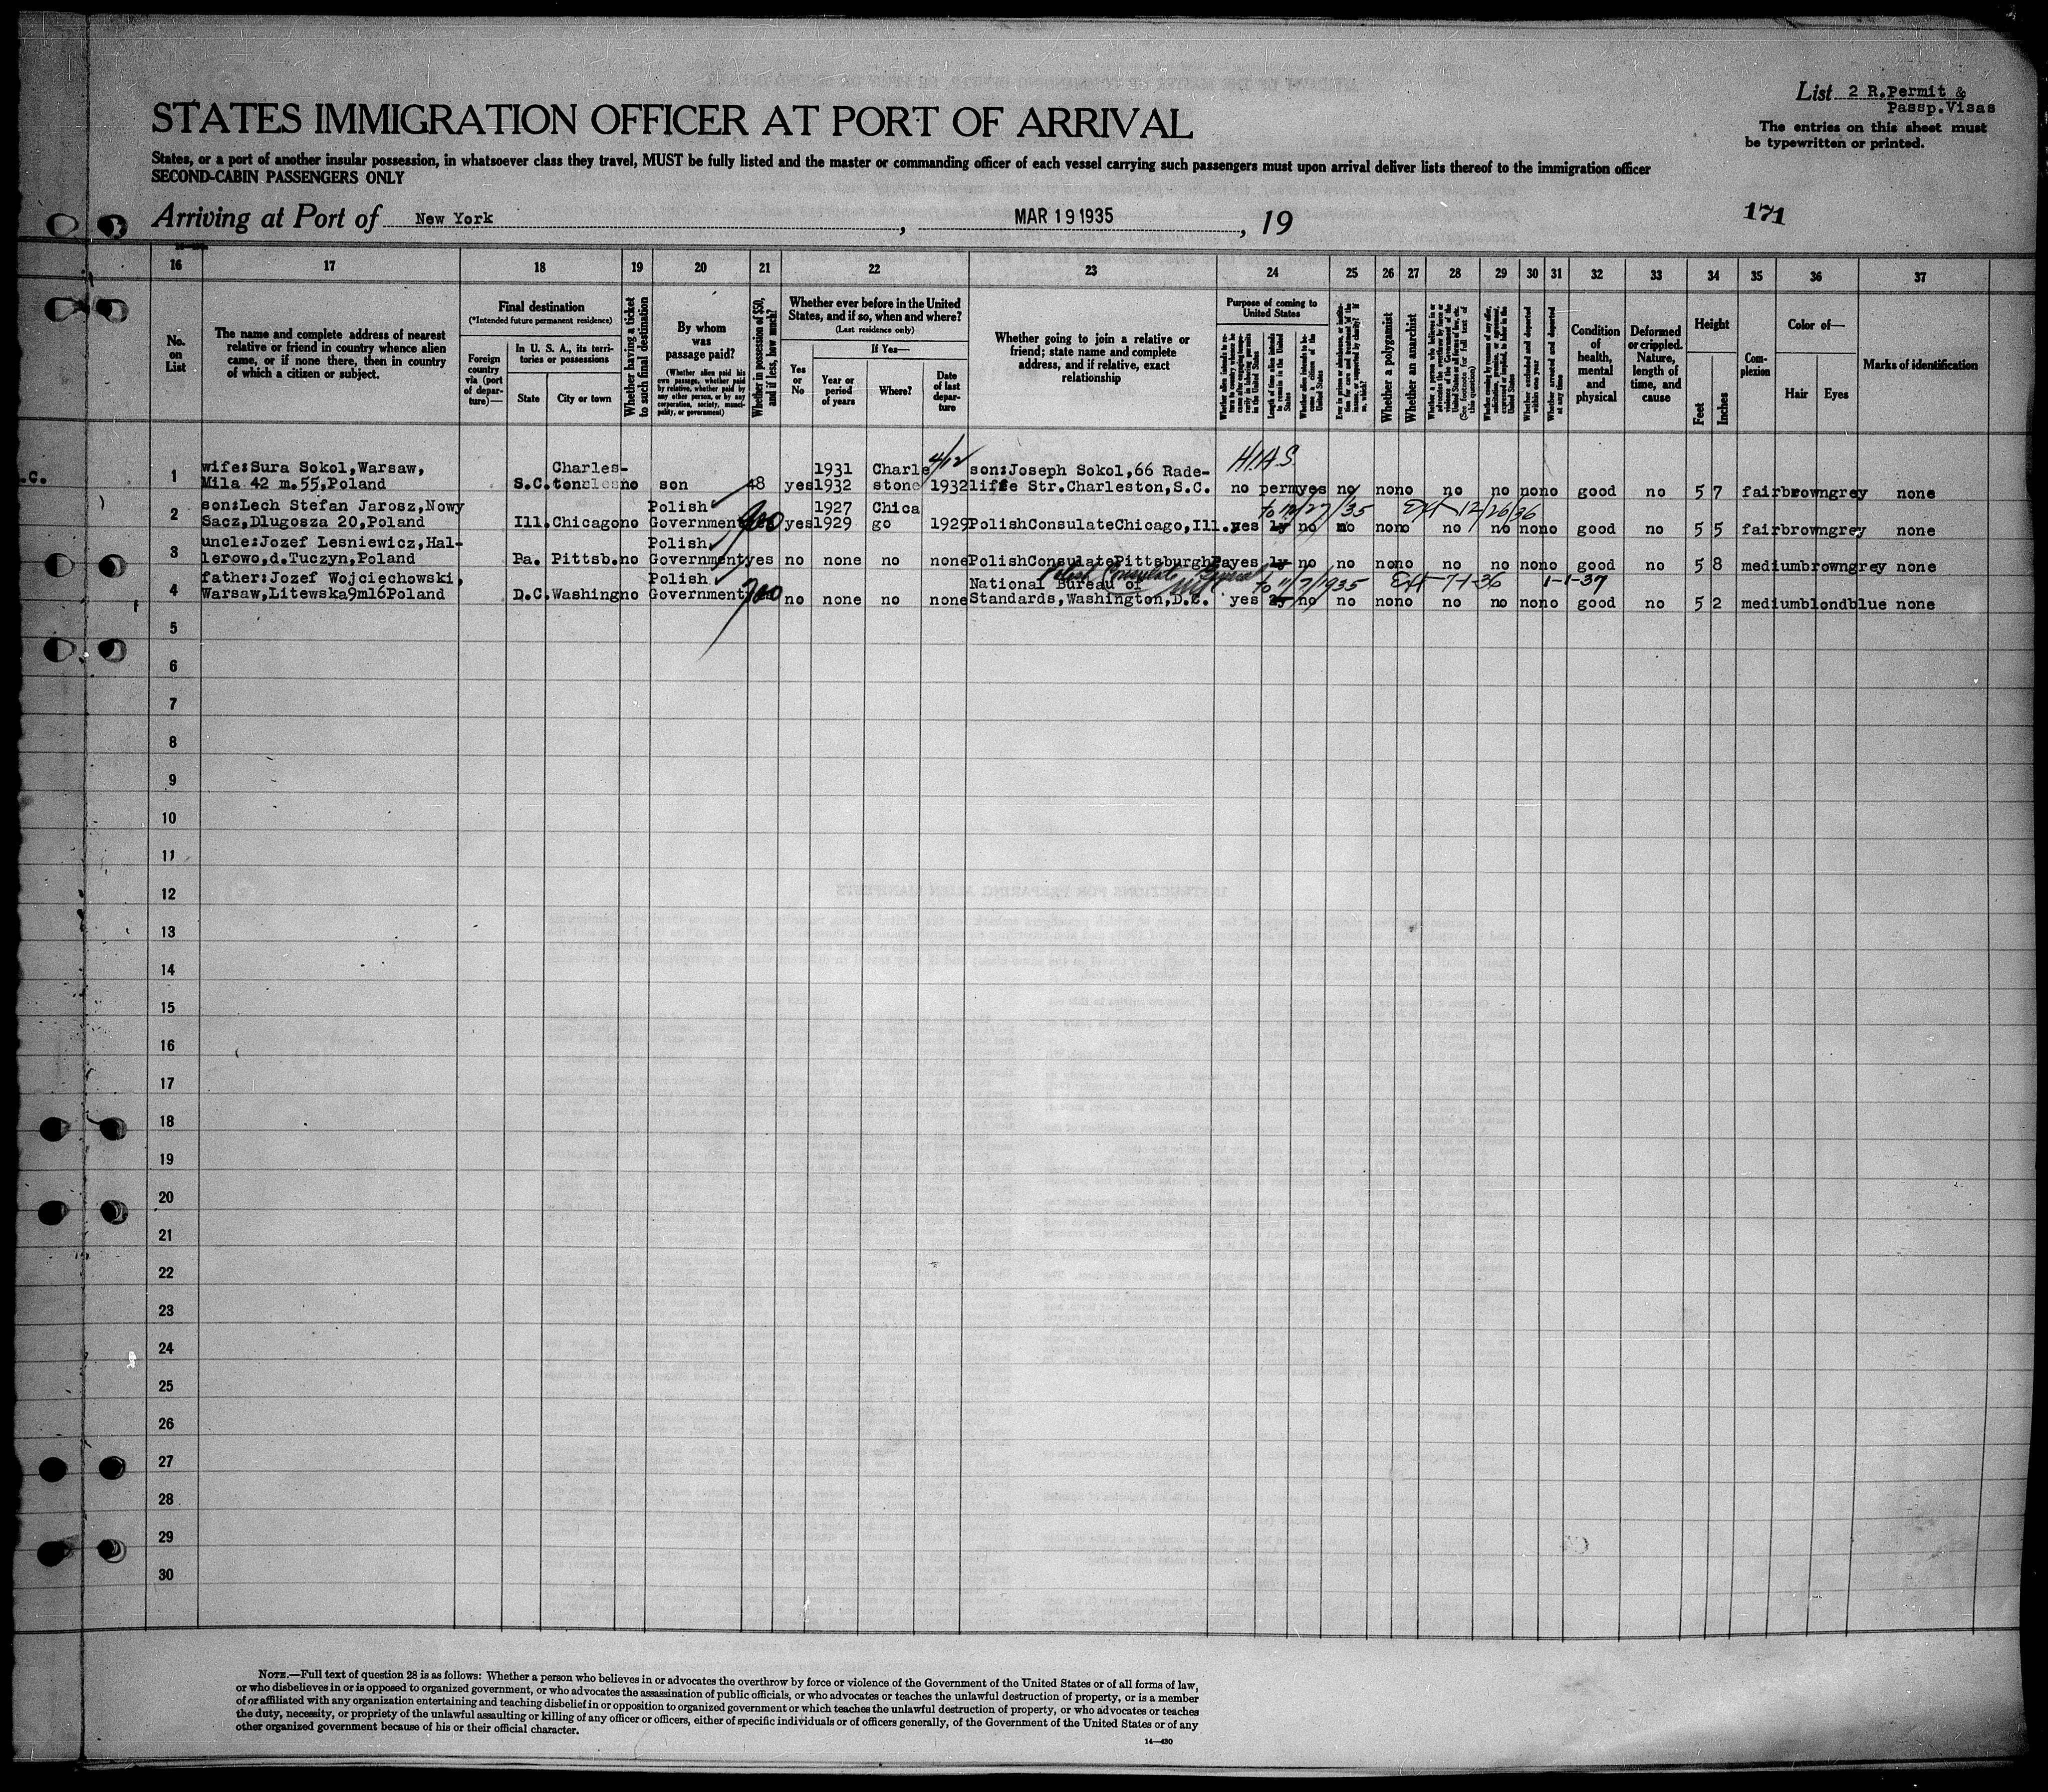 List 2 R.Permit &
Passp.Visas
STATES IMMIGRATION OFFICER AT PORT OF ARRIVAL
The entries on this sheet must
be typewritten or printed.
States, or a port of another insular possession, in whatsoever class they travel, MUST be fully listed and the master or commanding officer of each vessel carrying such passengers must upon arrival deliver lists thereof to the immigration officer
SECOND-CABIN PASSENGERS ONLY
Arriving at Port of New York, MAR 19 1935, 19
171
16 17 18 19 20 21 22 23 24 25 26 27 28 29 30 31 32 33 34 35 36 37
No. on List
The name and complete address of nearest
relative or friend in country whence alien
came, or if none there, then in country
of which a citizen or subject.
Final destination
(*Intended future permanent residence)
Foreign country via (port of departure)—
In U. S. A., its territories or possessions
State
City or town
Whether having a ticket to such final destination
By whom was passage paid?
(Whether alien paid his own passage, whether paid by relative, whether paid by any other person, or by any corporation, society, municipality, or government)
Whether in possession of $50, and if less, how much?
Whether ever before in the United States, and if so, when and where?
(Last residence only)
Yes or No
If Yes—
Year or period of years
Where?
Date of last departure
Whether going to join a relative or
friend; state name and complete
address, and if relative, exact
relationship
Purpose of coming to United States
Whether a polygamist
Whether an anarchist
Condition of health, mental and physical
Deformed or crippled. Nature, length of time, and cause
Height
Feet
Inches
Complexion
Color of—
Hair
Eyes
Marks of identification
.C.
1 wife:Sura Sokol,Warsaw, Charles- 1931 Charle 4/12 son:Joseph Sokol,66 Rade- H.I.A.S.
Mila 42 m.55,Poland S.C. ton no son 48 yes 1932 stone 1932 liffe Str.Charleston,S.C. no perm yes no no no no no no no good no 5 7 fair brown grey none
2 son:Lech Stefan Jarosz,Nowy Polish 1927 Chica Ext 12/26/36
Sacz,Dlugosza 20,Poland Ill. Chicago no Government 900 yes 1929 go 1929 PolishConsulateChicago,Ill. yes 1y no no no no no no no no good no 5 5 fair brown grey none
3 uncle:Jozef Lesniewicz,Hal- Polish
lerowo,d.Tuczyn,Poland Pa. Pittsb. no Government yes no none no none PolishConsulatePittsburghPa yes 1y no no no no no no no no good no 5 8 medium brown grey none
4 father:Jozef Wojciechowski, Polish National Bureau of Polish Consulate General to 11/7/1935 Ext 7-1-36 1-1-37
Warsaw,Litewska9m16Poland D.C. Washing no Government 700 no none no none Standards,Washington,D.C. yes no no no no no no no no good no 5 2 medium blond blue none
5
6
7
8
9
10
11
12
13
14
15
16
17
18
19
20
21
22
23
24
25
26
27
28
29
30
NOTE.—Full text of question 28 is as follows: Whether a person who believes in or advocates the overthrow by force or violence of the Government of the United States or of all forms of law,
or who disbelieves in or is opposed to organized government, or who advocates the assassination of public officials, or who advocates or teaches the unlawful destruction of property, or is a member
of or affiliated with any organization entertaining and teaching disbelief in or opposition to organized government or which teaches the unlawful destruction of property, or who advocates or teaches
the duty, necessity, or propriety of the unlawful assaulting or killing of any officer or officers, either of specific individuals or of officers generally, of the Government of the United States or of any
other organized government because of his or their official character.
14—430